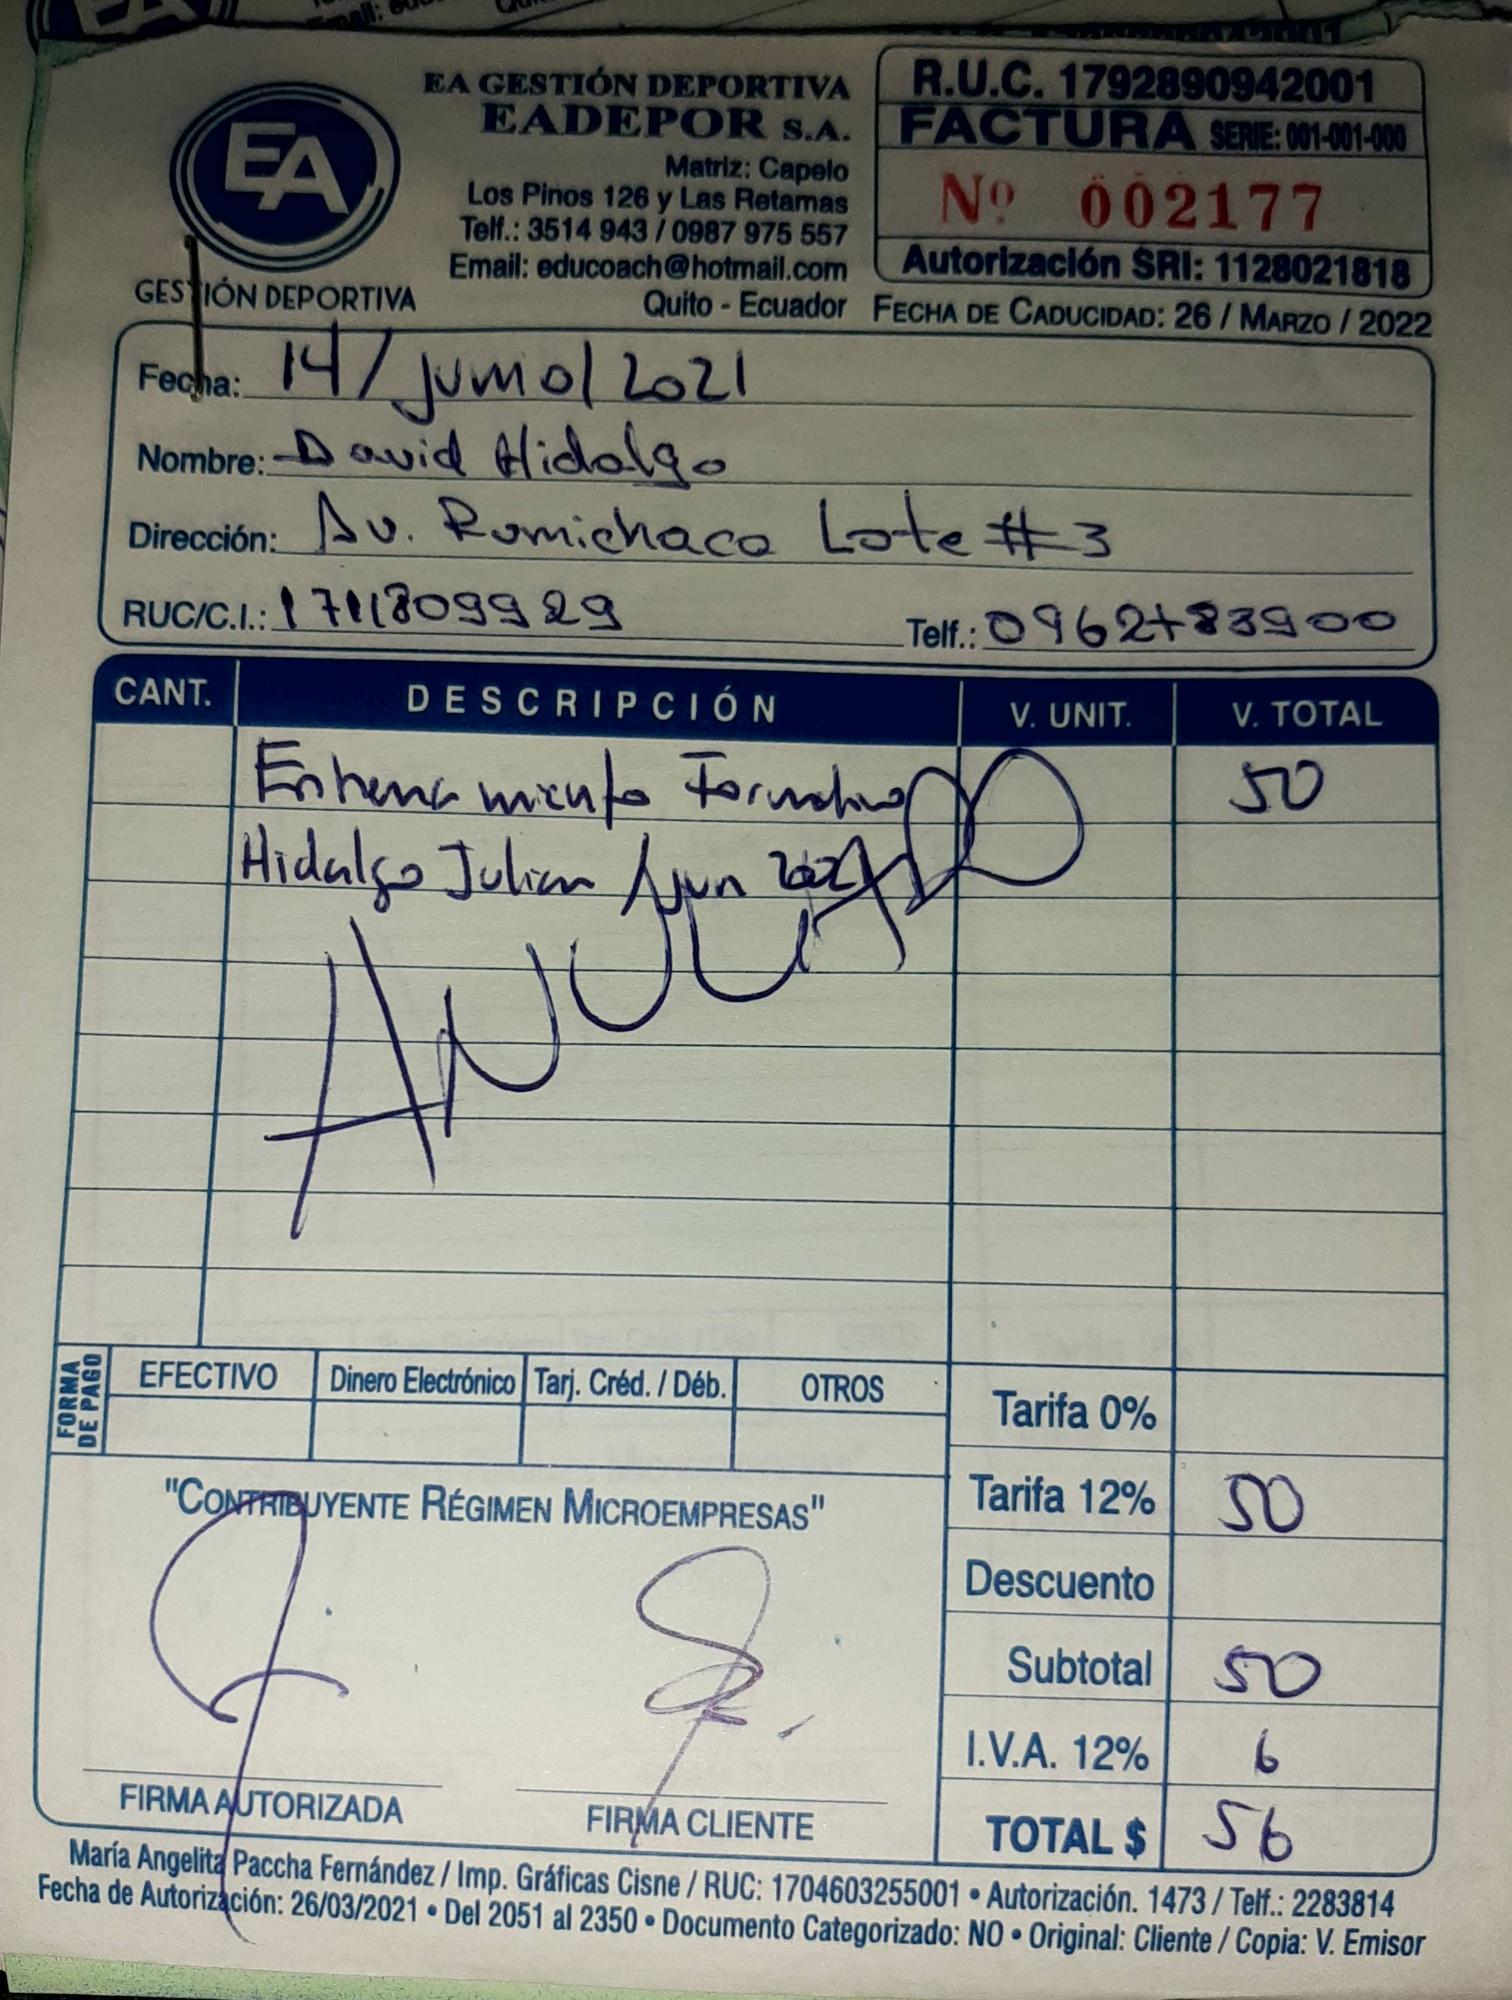 EA GESTIÓN DEPORTIVA
EADEPOR S.A.
Matriz: Capelo
Los Pinos 126 y Las Retamas
Telf.: 3514 943 / 0987 975 557
Email: educoach@hotmail.com
Quito - Ecuador
EA
GESTIÓN DEPORTIVA
R.U.C. 1792890942001
FACTURA SERIE: 001-001-000
Nº 002177
Autorización SRI: 1128021818
FECHA DE CADUCIDAD: 26 / MARZO / 2022
Fecha: 14/junio/2021
Nombre: David Hidalgo
Dirección: Av. Rumichaca Lote #3
RUC/C.I.: 1711809929 Telf.: 0962783900
CANT. DESCRIPCIÓN V. UNIT. V. TOTAL
Entrenamiento Formativo 50
Hidalgo Julian / Jun 2021
ANULADO
FORMA DE PAGO
EFECTIVO Dinero Electrónico Tarj. Créd. / Déb. OTROS
Tarifa 0%
Tarifa 12% 50
Descuento
Subtotal 50
I.V.A. 12% 6
TOTAL $ 56
"CONTRIBUYENTE RÉGIMEN MICROEMPRESAS"
FIRMA AUTORIZADA FIRMA CLIENTE
María Angelita Paccha Fernández / Imp. Gráficas Cisne / RUC: 1704603255001 • Autorización. 1473 / Telf.: 2283814
Fecha de Autorización: 26/03/2021 • Del 2051 al 2350 • Documento Categorizado: NO • Original: Cliente / Copia: V. Emisor